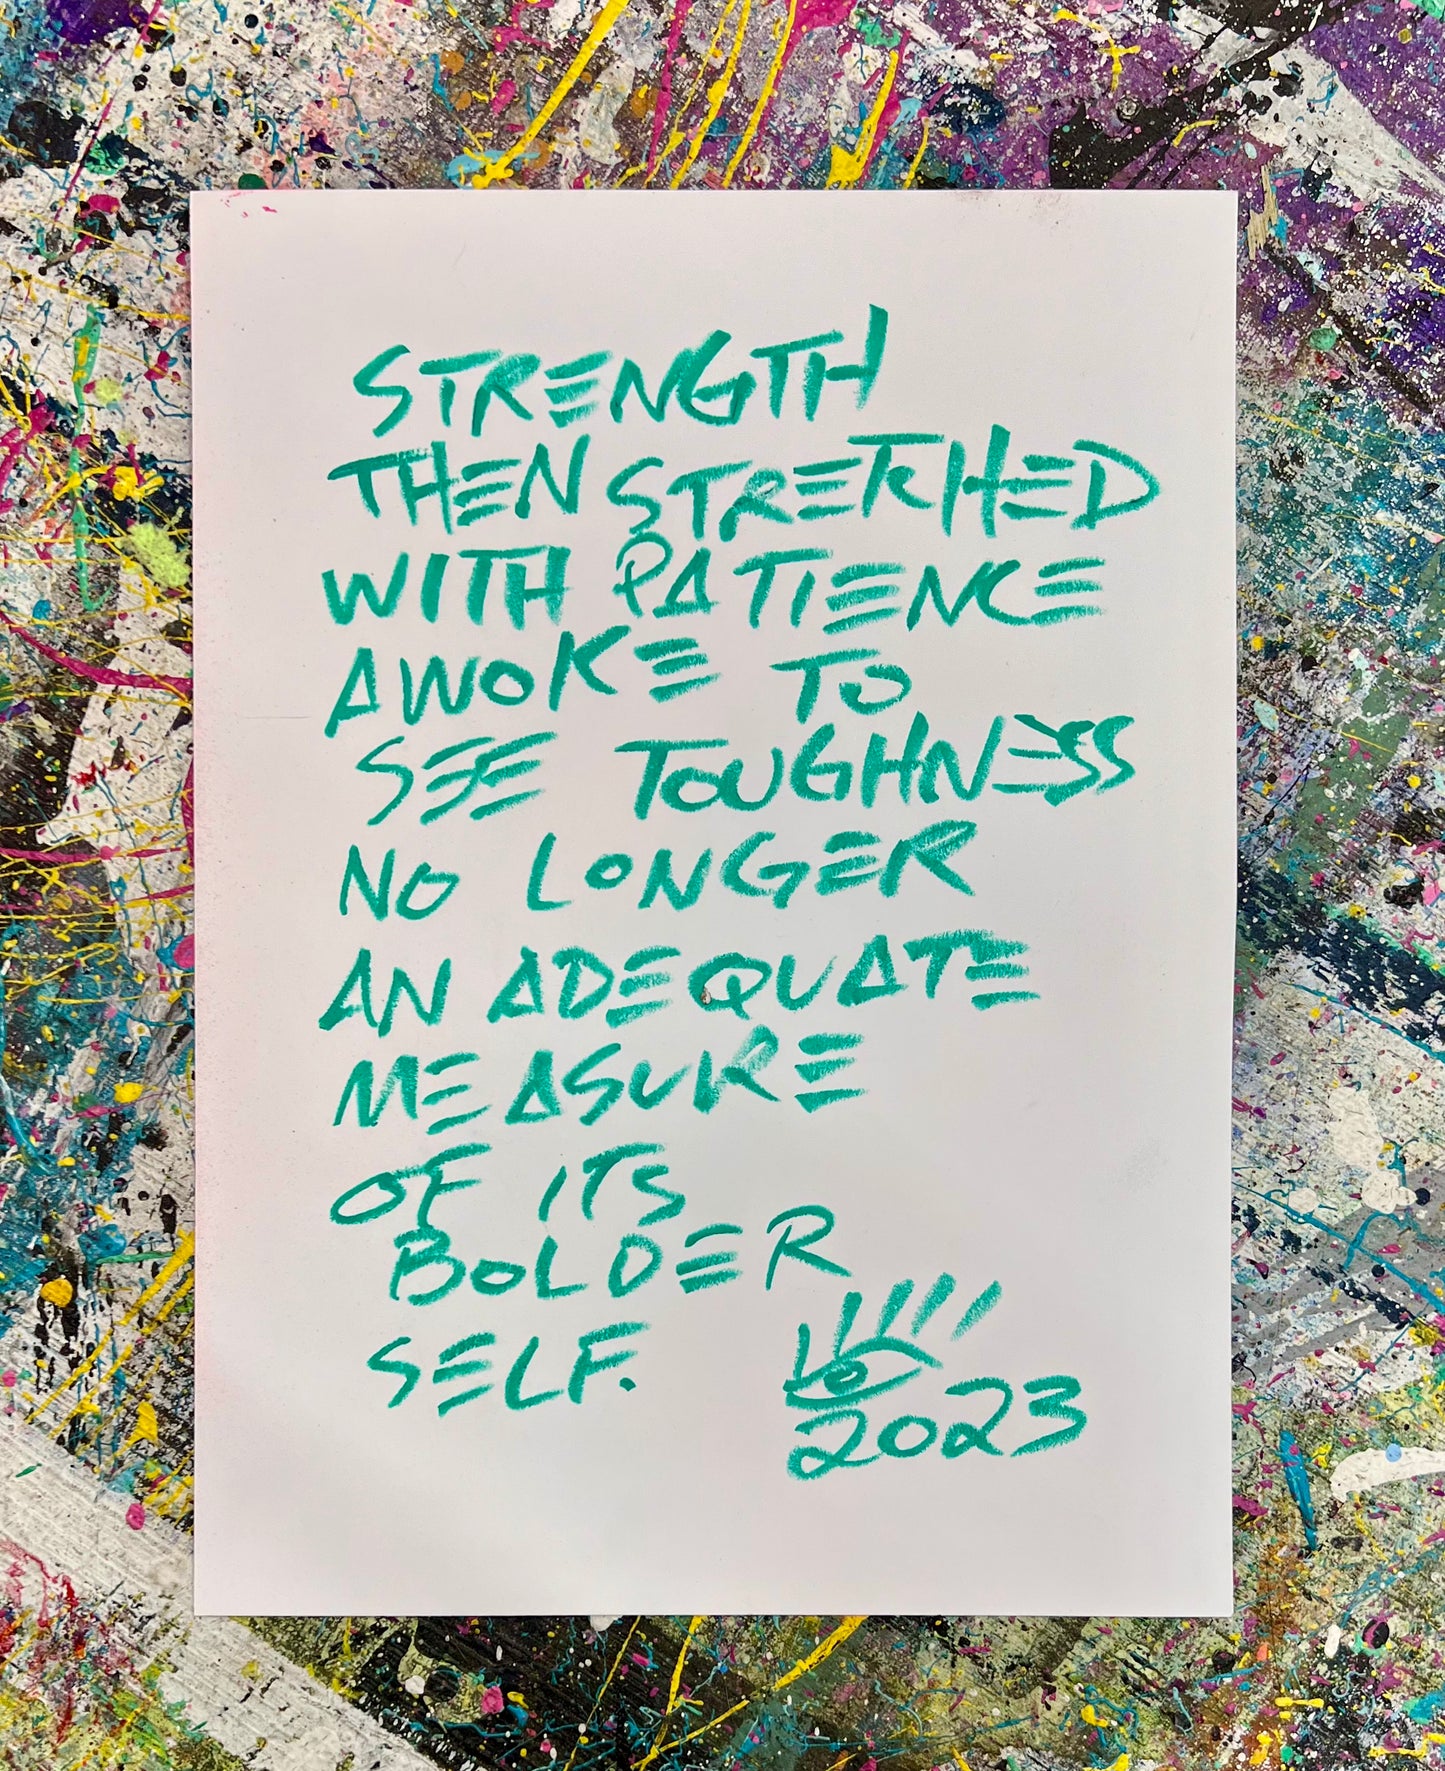 STRENGTH
THEN STRETCHED
WITH PATIENCE
AWOKE TO
SEE TOUGHNESS
NO LONGER
AN ADEQUATE
MEASURE
OF ITS
BOLDER
SELF.
2023